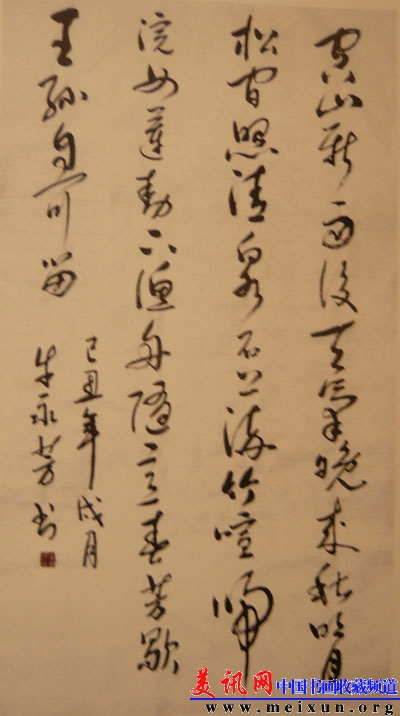 空山新雨後天氣晚來秋明月
松間照清泉石上流竹喧歸
浣女蓮動下漁舟隨意春芳歇
王孫自可留
己丑年戌月
永芳书
美讯网 中国书画收藏频道
www.meixun.org